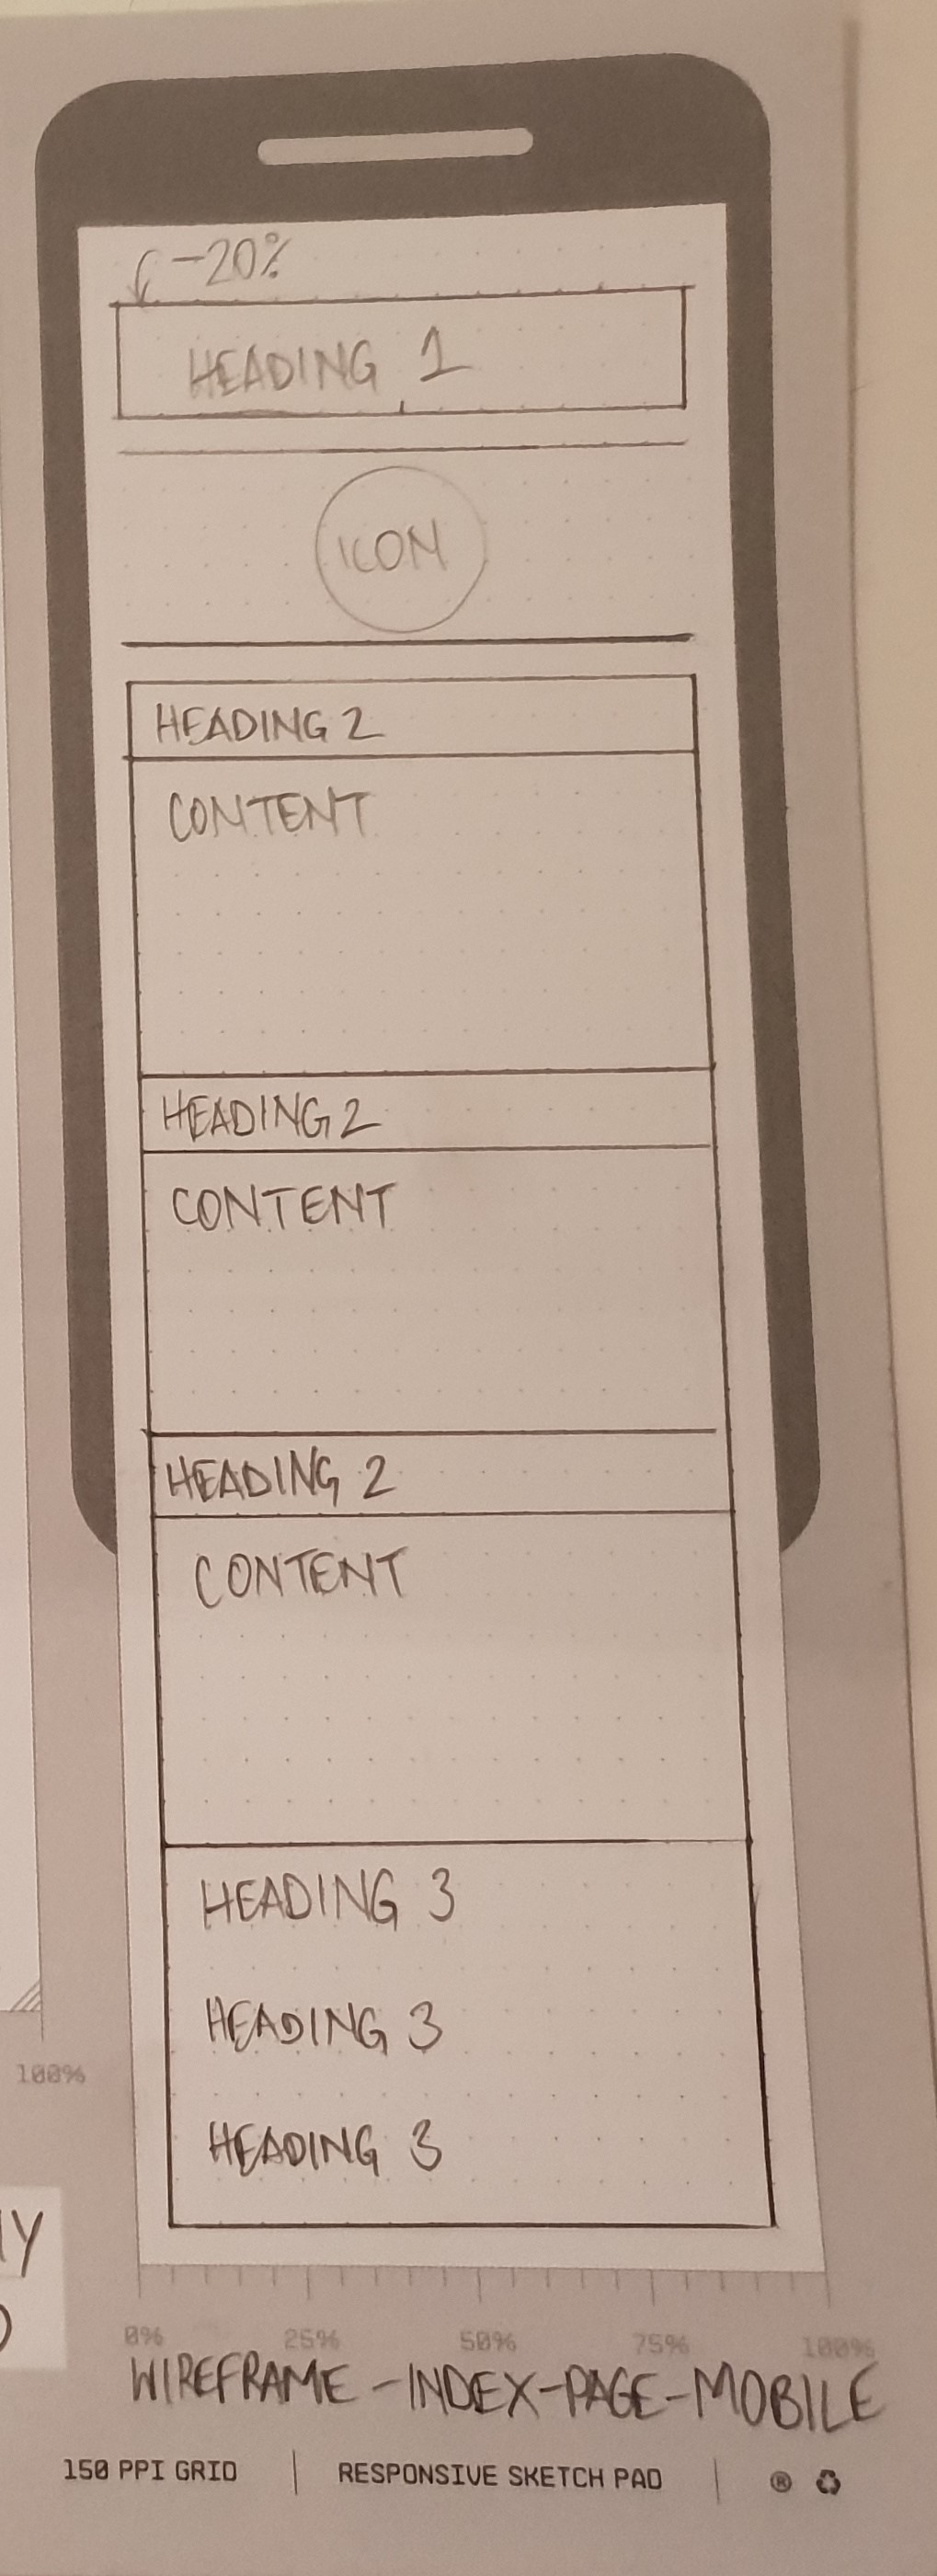 -20%
HEADING 1
ICON
HEADING 2
CONTENT
HEADING 2
CONTENT
HEADING 2
CONTENT
HEADING 3
HEADING 3
HEADING 3
100%
0% 25% 50% 75% 100%
WIREFRAME-INDEX-PAGE-MOBILE
150 PPI GRID | RESPONSIVE SKETCH PAD | ®